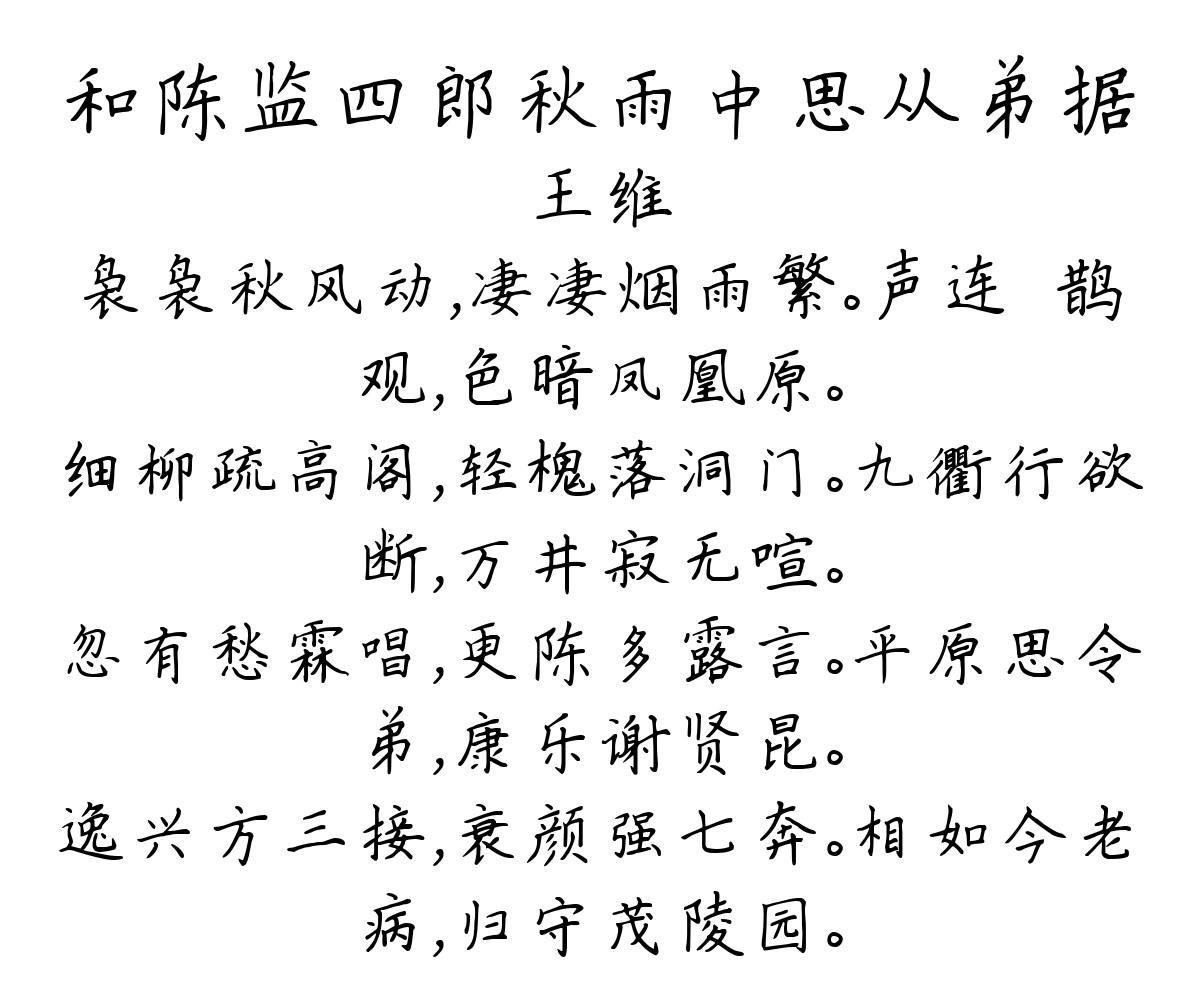 和陈监四郎秋雨中思从弟据
王维
袅袅秋风动,凄凄烟雨繁。声连 鹊
观,色暗凤凰原。
细柳疏高阁,轻槐落洞门。九衢行欲
断,万井寂无喧。
忽有愁霖唱,更陈多露言。平原思令
弟,康乐谢贤昆。
逸兴方三接,衰颜强七奔。相如今老
病,归守茂陵园。